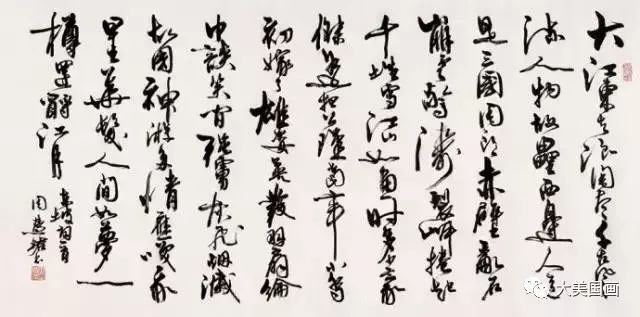 大江東去浪淘盡千古風
流人物故壘西邊人道
是三國周郎赤壁亂石
崩雲驚濤裂岸捲起
千堆雪江山如畫一時多少豪
傑遙想公瑾當年小喬
初嫁了雄姿英發羽扇綸
巾談笑間強虜灰飛煙滅
故國神游多情應笑我
早生華髮人間如夢一
樽還酹江月
東坡詞一首
周慧珺
大美国画